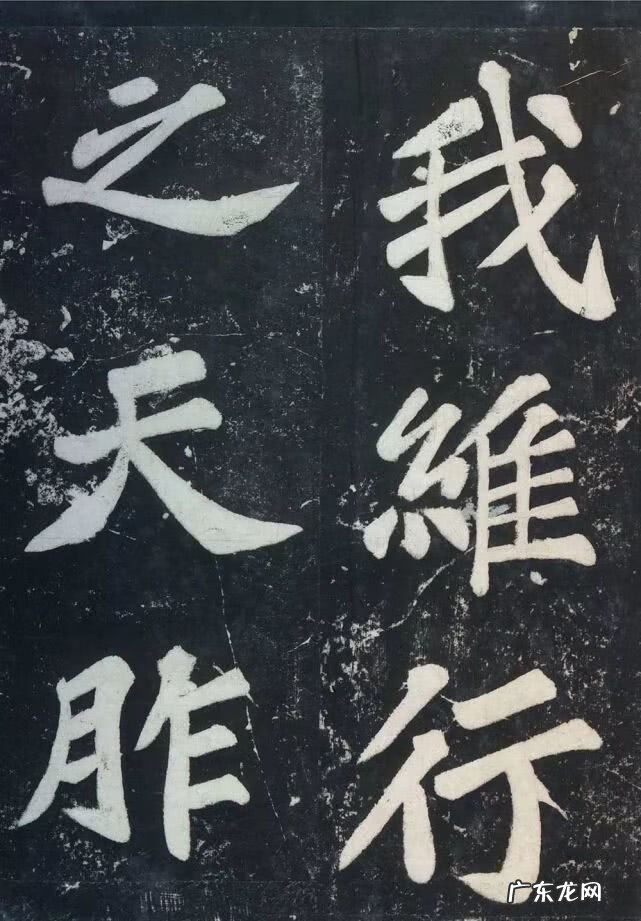 我維行
之天胙
广东龙网